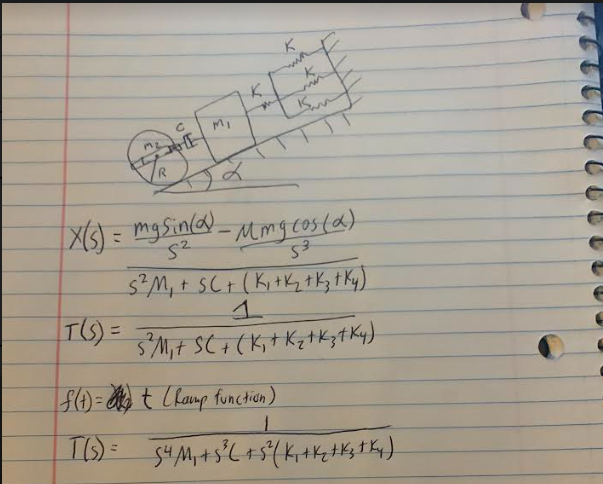 K
K
K
K
C
M₁
m₂
R
α
X(s) = (mg sin(α)/s² - Mmg cos(α)/s³) / (s²M₁ + sC + (K₁+K₂+K₃+K₄))
T(s) = 1 / (s²M₁ + sC + (K₁+K₂+K₃+K₄))
f(t) = t (Ramp function)
T(s) = 1 / (s⁴M₁ + s³C + s²(K₁+K₂+K₃+K₄))